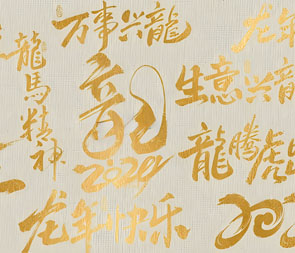 万事兴龍
龍馬精神
龍
2024
龙年快乐
龙年
生意兴龍
龍腾虎